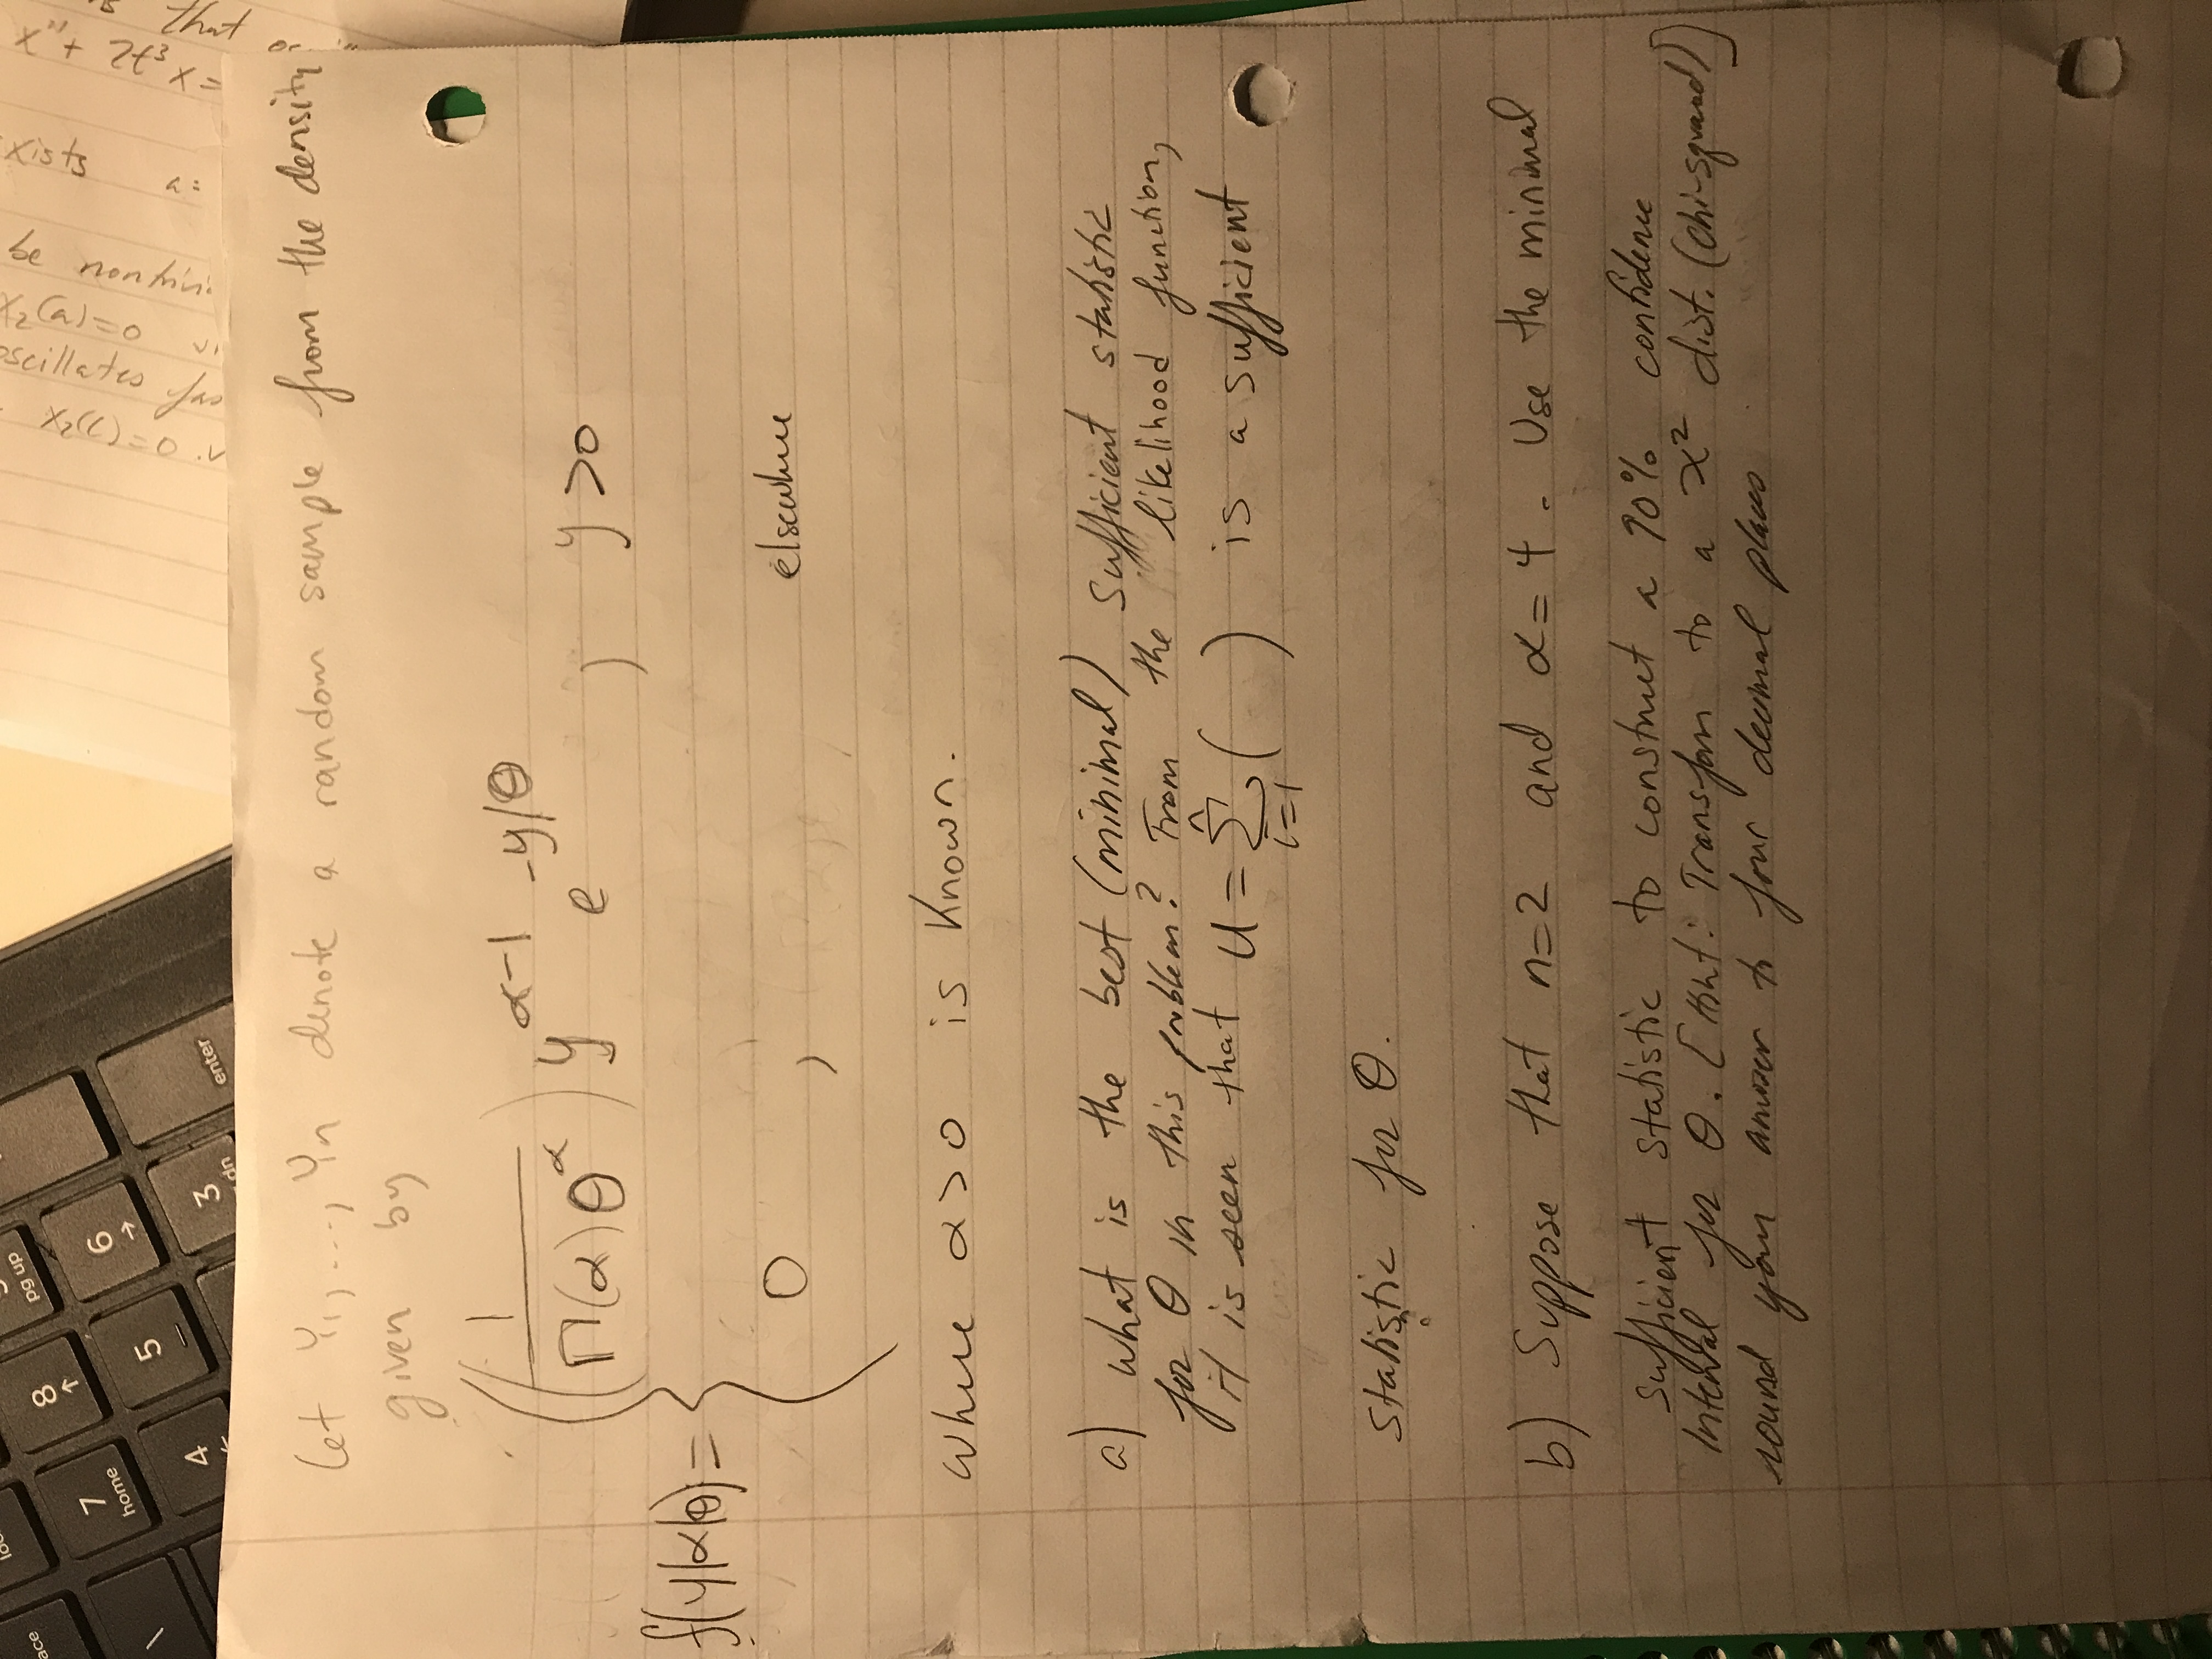 ace
7
home
8
↑
pg up
\
5
6
→
4
3
dn
enter
be
x₂(a)=0
oscillates
x₂(
)=0
x" + 2t³ x =
that
Let Y₁, ..., Yn denote a random sample from the density
given by
f(y|α|θ) = { (1 / Γ(α)θ^α) y^(α-1) e^(-y/θ) , y>0
0 , elsewhere
where α>0 is known.
a) what is the best (minimal) sufficient statistic
for θ in this problem? From the likelihood function,
it is seen that U = Σ_(i=1)^n ( ) is a sufficient
statistic for θ.
b) Suppose that n=2 and α=4. Use the minimal
sufficient statistic to construct a 90% confidence
Interval for θ. [Hint: Transform to a x² dist. (chi-squared)]
round your answer to four decimal places